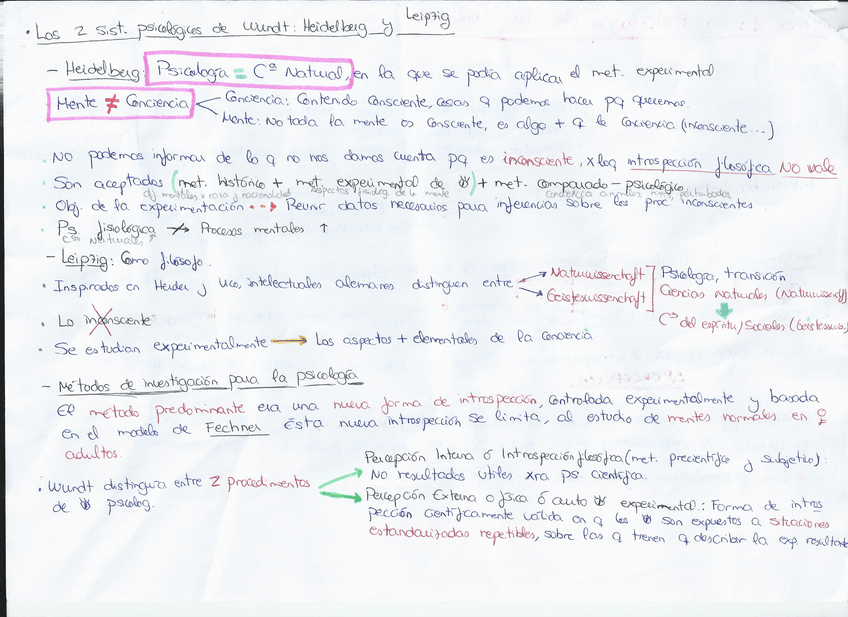 · Los 2 sist. psicológicos de Wundt: Heidelberg y Leipzig
- Heidelberg: Psicología = Cª Natural, en la que se podía aplicar el met. experimental
Mente ≠ Conciencia
Conciencia: Contenido consciente, cosas q podemos hacer pq queremos.
Mente: No toda la mente es consciente, es algo + q la conciencia (inconsciente...)
· No podemos informar de lo q no nos damos cuenta pq es inconsciente, x loq introspección filosófica No vale
· Son aceptados (met. histórico + met. experimental de ) + met. comparado - psicológico
dif mentales x raza y nacionalidad
aspectos fisiológ. de la mente
conciencia animales, niños, perturbados
· Obj. de la experimentación --> Reunir datos necesarios para inferencias sobre los proc. inconscientes
· Ps. fisiológica → Procesos mentales ↑
Cªs Naturales ↑
- Leipzig: Como filósofo.
· Inspirados en Herder y Vico, intelectuales alemanes distinguen entre
Naturwissenschaft
Geisteswissenschaft
Psicología, transición
Ciencias Naturales (Naturwissensch)
Cª del espíritu/Sociales (Geisteswiss)
· Lo inconsciente
· Se estudian experimentalmente → Los aspectos + elementales de la conciencia
- Métodos de investigación para la psicología
El método predominante era una nueva forma de introspección, controlada experimentalmente y basada
en el modelo de Fechner Esta nueva introspección se limita, al estudio de mentes normales en
adultos.
· Wundt distinguía entre 2 procedimientos
de psicolog.
Percepción Interna ó Introspección filosófica (met. precientífico y subjetivo):
No resultados utiles xra ps. científica.
Percepción Externa o física ó auto experimental.: Forma de intros
pección científicamente válida en q los son expuestos a situaciones
estandarizadas repetibles, sobre las q tienen q describir la exp. resultante